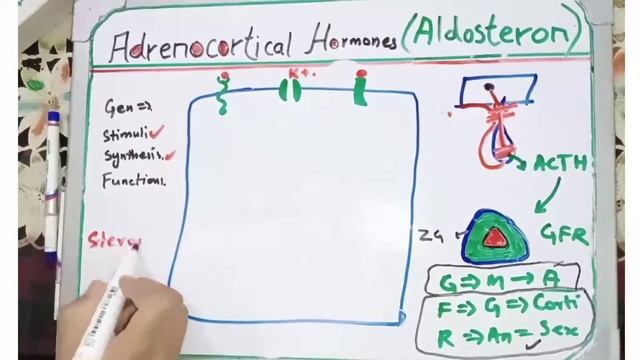 Adrenocortical Hormones (Aldosteron)
K+.
Gen =>
Stimuli ✓
Synthesis. ✓
Function.
Sero
ACTH
ZG
GFR
G => M → A
F => G => Corti
R => An = Sex ✓